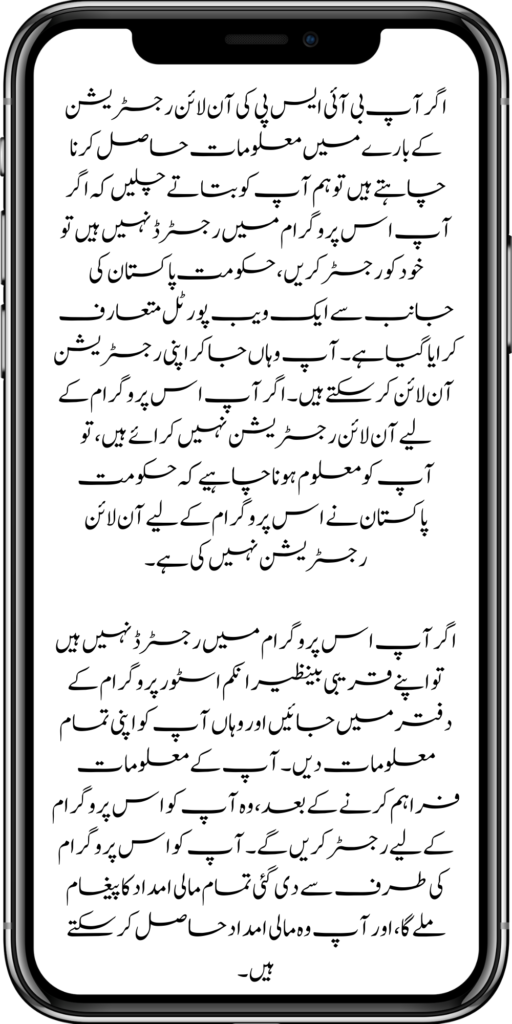 اگر آپ بی آئی ایس پی کی آن لائن رجسٹریشن
کے بارے میں معلومات حاصل کرنا
چاہتے ہیں تو ہم آپ کو بتاتے چلیں کہ اگر
آپ اس پروگرام میں رجسٹرڈ نہیں ہیں تو
خود کو رجسٹر کریں، حکومت پاکستان کی
جانب سے ایک ویب پورٹل متعارف
کرایا گیا ہے۔ آپ وہاں جا کر اپنی رجسٹریشن
آن لائن کر سکتے ہیں۔ اگر آپ اس پروگرام کے
لیے آن لائن رجسٹریشن نہیں کرائے ہیں، تو
آپ کو معلوم ہونا چاہیے کہ حکومت
پاکستان نے اس پروگرام کے لیے آن لائن
رجسٹریشن نہیں کی ہے۔
اگر آپ اس پروگرام میں رجسٹرڈ نہیں ہیں
تو اپنے قریبی بینظیر انکم اسٹور پروگرام کے
دفتر میں جائیں اور وہاں آپ کو اپنی تمام
معلومات دیں۔ آپ کے معلومات
فراہم کرنے کے بعد، وہ آپ کو اس پروگرام
کے لیے رجسٹر کریں گے۔ آپ کو اس پروگرام
کی طرف سے دی گئی تمام مالی امداد کا پیغام
ملے گا، اور آپ وہ مالی امداد حاصل کر سکتے
ہیں۔